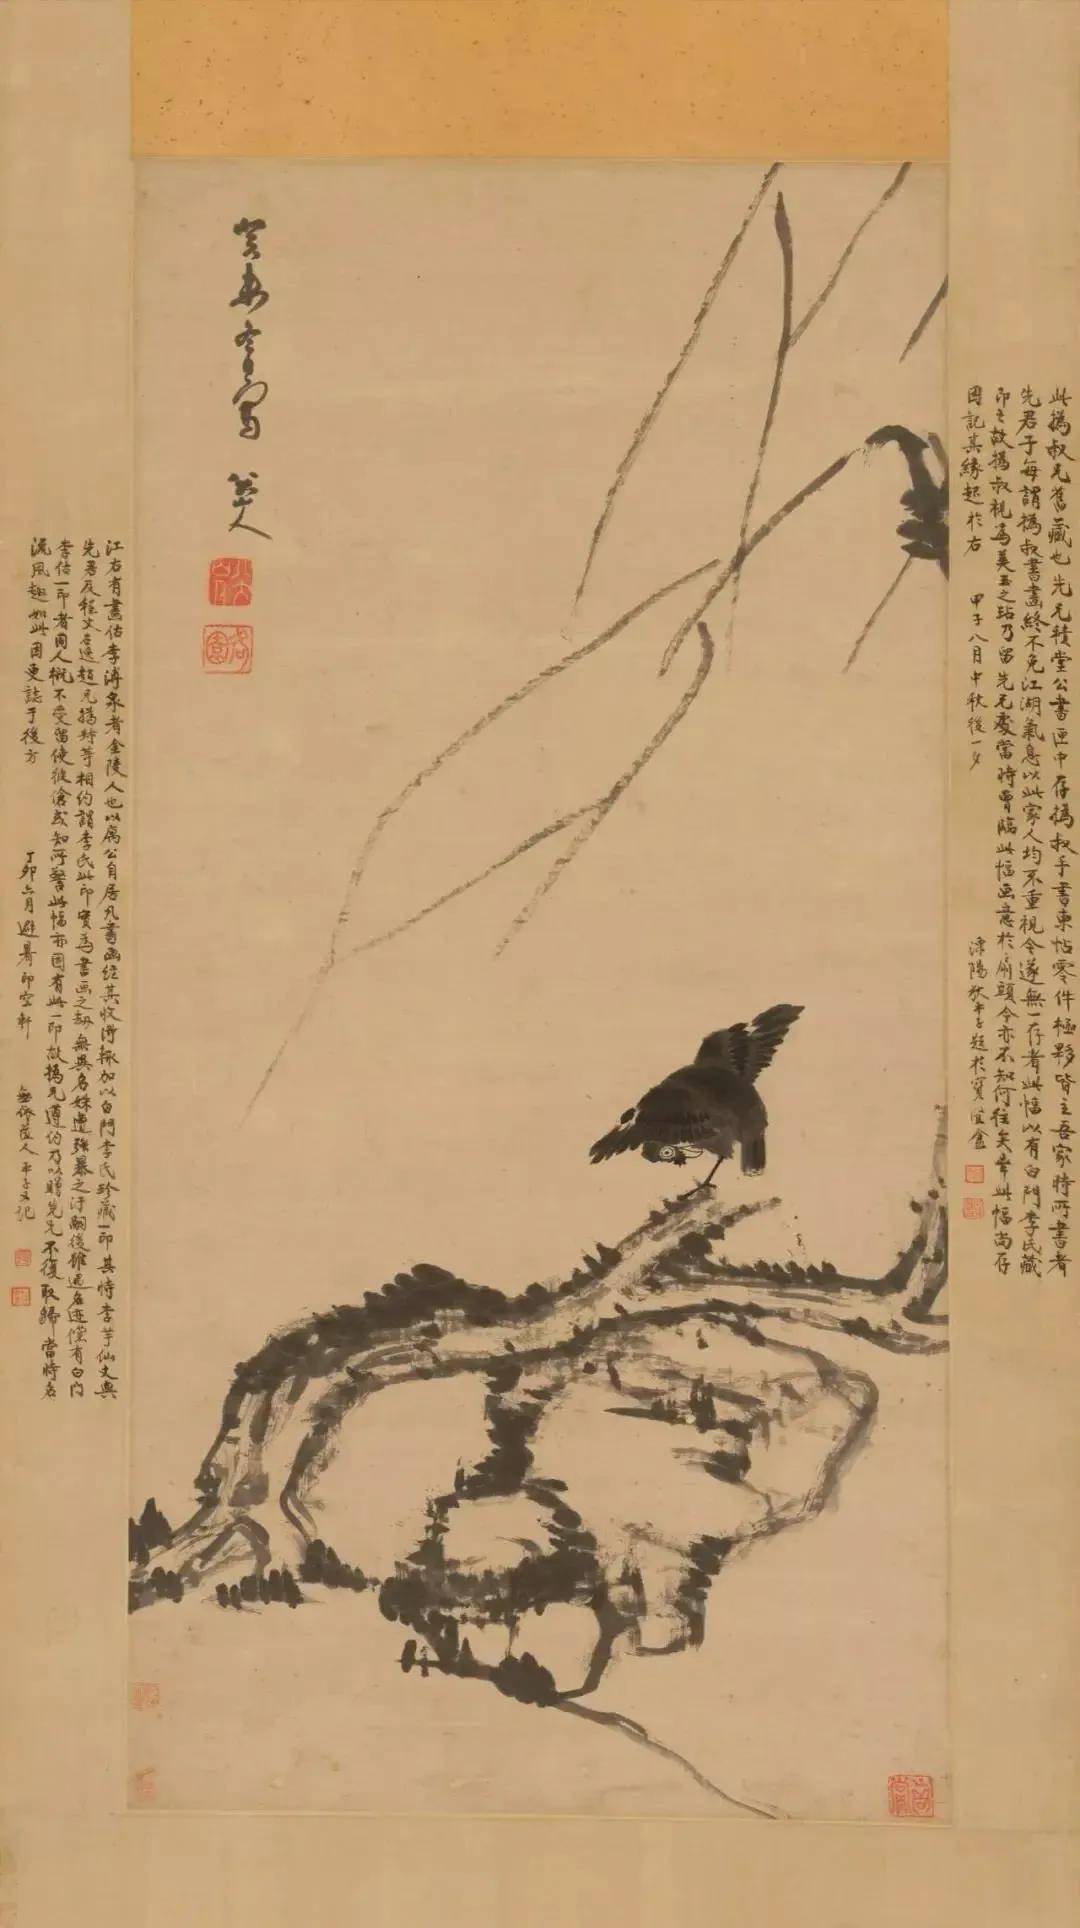 此撝叔兄舊藏也先兄積堂公書匣中存撝叔手書柬帖零件極夥皆主吾家時所書者
先君子每謂撝叔書畫終不免江湖氣息以此家人均不重視今遂無一存者此幅以有白門李氏藏
印之故撝叔視為美玉之玷乃留先兄處當時曾臨此幅畫意於扇頭今亦不知何往矣幸此幅尚存
因記其緣起於右 甲子八月中秋後一夕 溧陽狄平子題於寶
癸未冬日寫 八大山人
八大山人
何園
江右有畫估李溥泉者金陵人也以公自居凡書画經其收得輒加以白門李氏珍藏一印其時李芋仙丈與
先君及程丈趙兄撝叔等相約謂李氏此印實為書画之劫無異名姝遭強暴之汙嗣後雖遇名迹僅有白門
李估一印者同人概不受留使彼傖或知所警此幅亦因有此一印故撝兄遵約乃以贈先兄不復取歸當時名
流風趣如此因更誌于後方 丁卯六月避暑印空軒 人平子又記